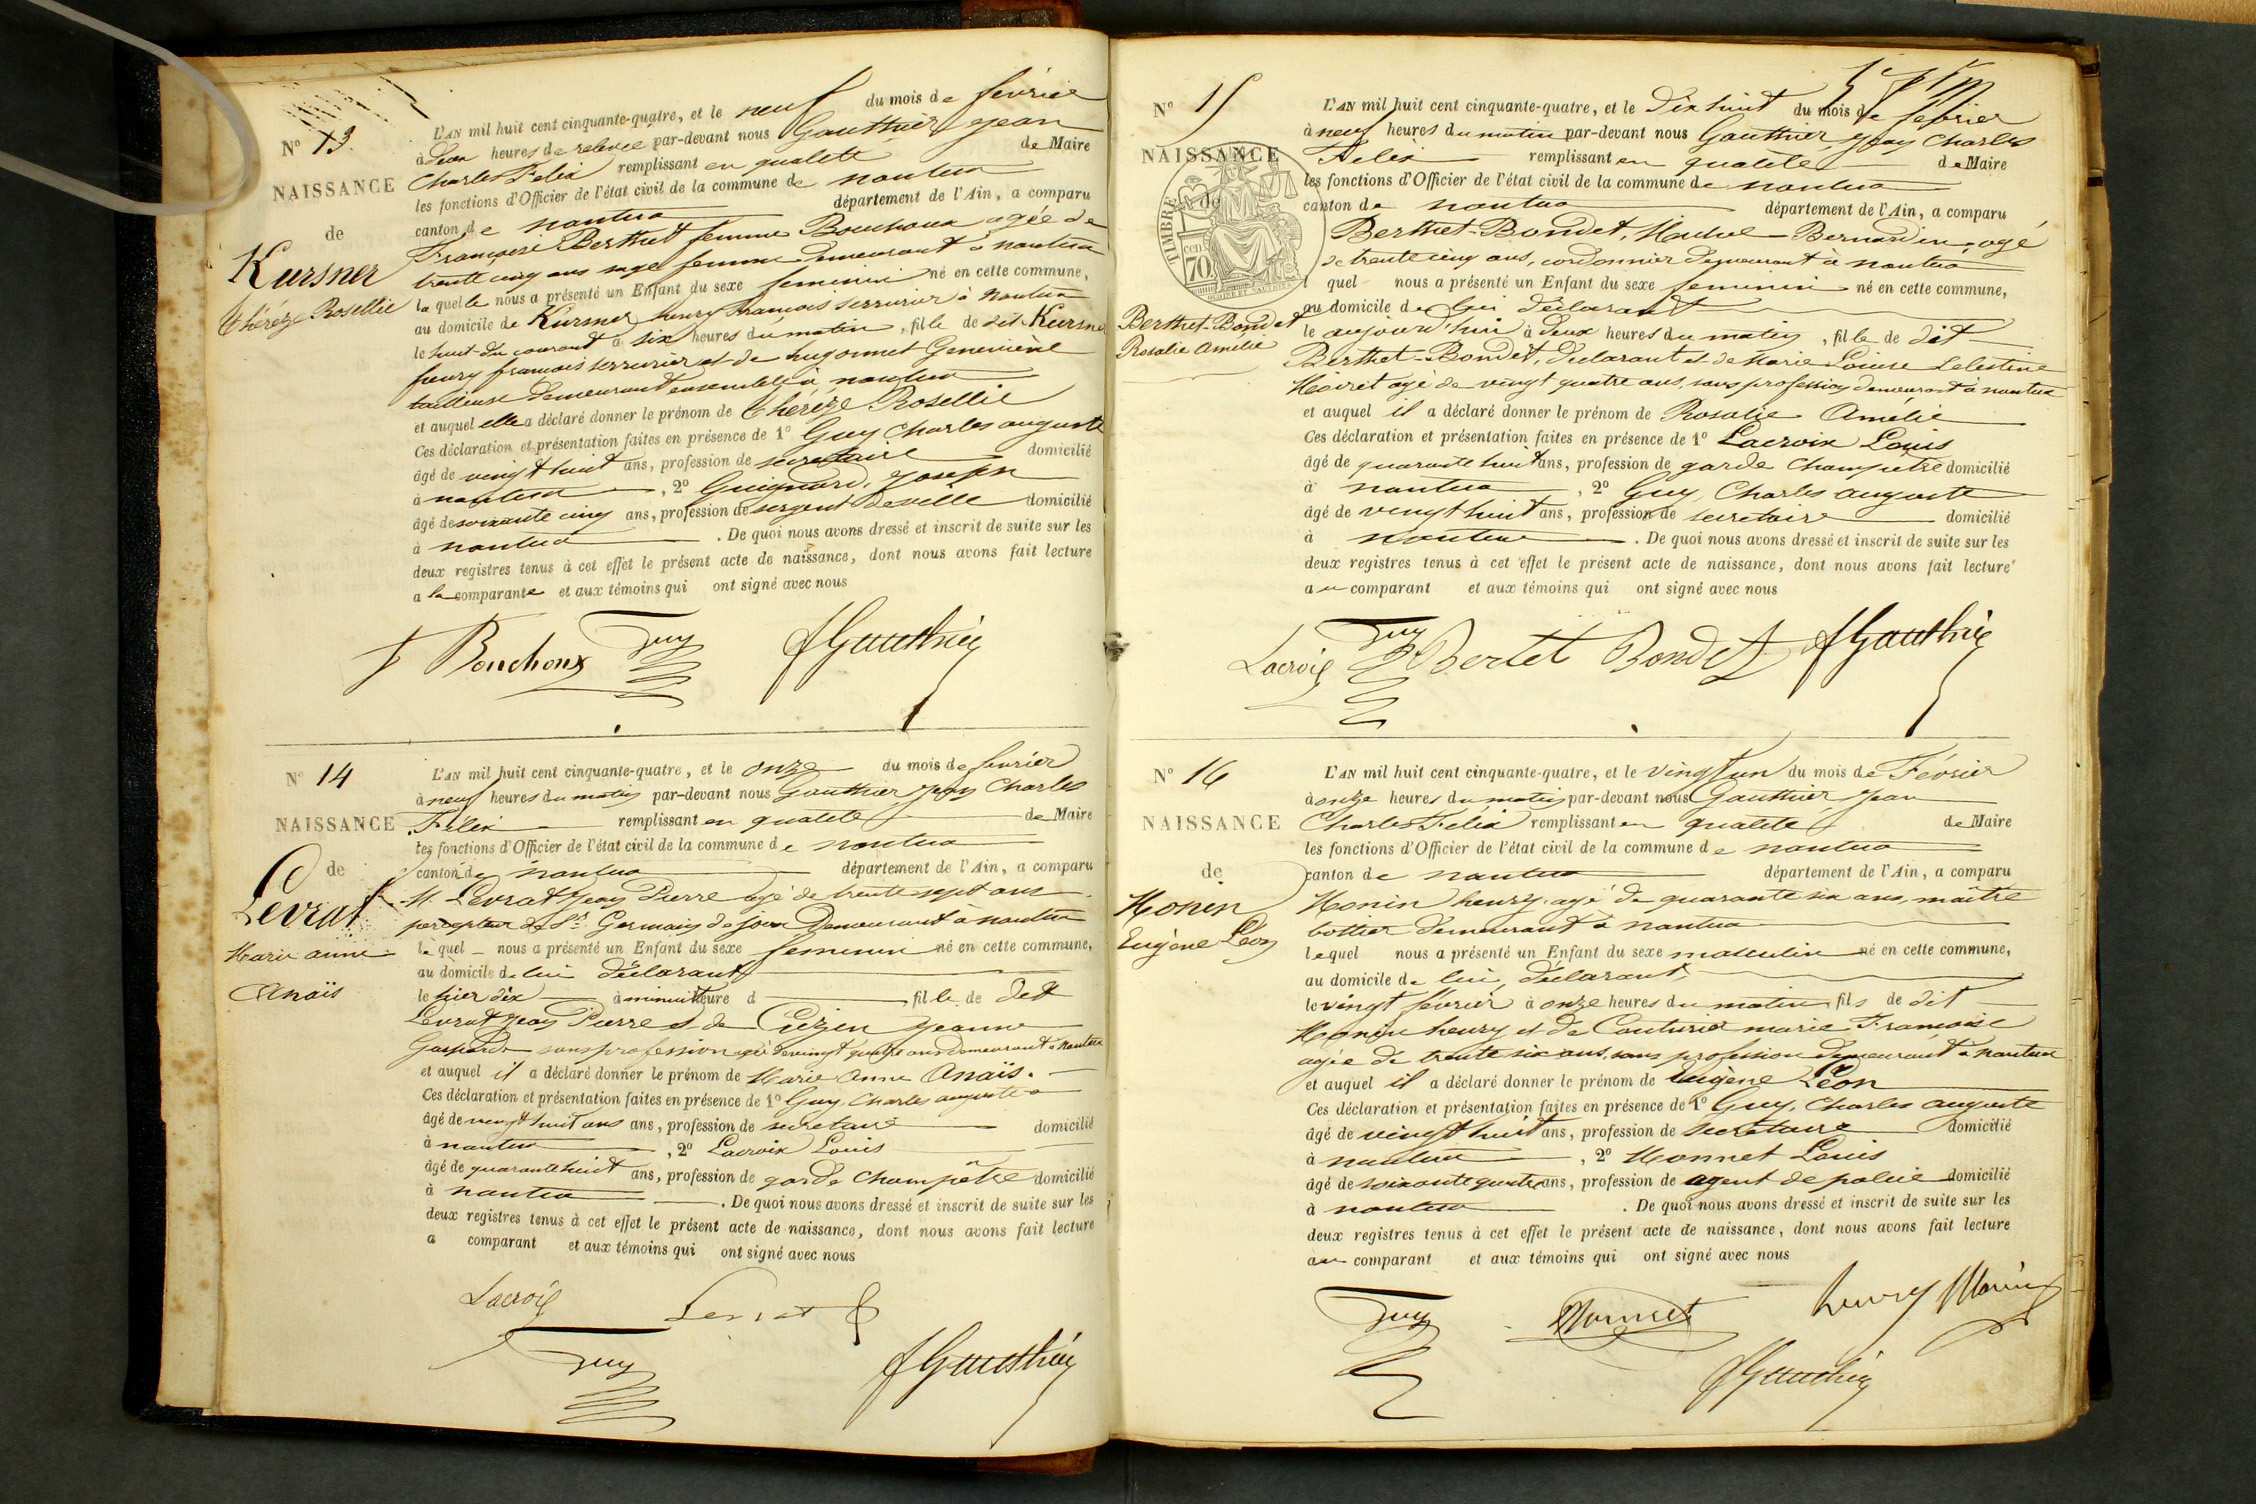 N° 13.
NAISSANCE
de
Kursner
Thérèze Rosellie
L'AN mil huit cent cinquante-quatre, et le neuf du mois de février
à deux heures de relevée par-devant nous Gauthier Jean
Charles Felix remplissant en qualité de Maire
les fonctions d'Officier de l'état civil de la commune de nantua
canton de nantua département de l'Ain, a comparu
Françoise Berthet femme Bouchoux agée de
trente cinq ans sage femme demeurant à nantua
laquelle nous a présenté un Enfant du sexe feminin né en cette commune,
au domicile de Kursner henry françois serrurier à Nantua
le huit du courant à six heures du matin, fille de dit Kursner
henry françois serrurier et de hugonnet Geneviève
tailleuse demeurant ensemble à nantua
et auquel elle a déclaré donner le prénom de Thérèze Rosellie
Ces déclaration et présentation faites en présence de 1° Guy Charles auguste
âgé de vingt huit ans, profession de secretaire domicilié
à nantua, 2° Guignard, Joseph
âgé de soixante cinq ans, profession de sergent de ville domicilié
à nantua. De quoi nous avons dressé et inscrit de suite sur les
deux registres tenus à cet effet le présent acte de naissance, dont nous avons fait lecture
a la comparante et aux témoins qui ont signé avec nous
f Bouchoux Guy fGauthier
N° 14
NAISSANCE
de
Levrat
Marie anne
Anaïs
L'AN mil huit cent cinquante-quatre, et le onze du mois de fevrier
à neuf heures du matin par-devant nous Gauthier Jean Charles
Félix remplissant en qualité de Maire
les fonctions d'Officier de l'état civil de la commune de nantua
canton de nantua département de l'Ain, a comparu
M. Levrat Jean Pierre agé de trente sept ans
percepteur de St Germain de joux Demeurant à nantua
lequel nous a présenté un Enfant du sexe feminin né en cette commune,
au domicile de lui déclarant
le hier dix à minuit heure d fille de dit
Levrat Jean Pierre et de Jeanne
Gasparde sans profession agé de vingt quatre ans demeurant à Nantua
et auquel il a déclaré donner le prénom de Marie Anne Anaïs.
Ces déclaration et présentation faites en présence de 1° Guy Charles auguste
âgé de vingt huit ans ans, profession de secretaire domicilié
à nantua, 2° Lacroix Louis
âgé de quarante huit ans, profession de garde Champêtre domicilié
à nantua. De quoi nous avons dressé et inscrit de suite sur les
deux registres tenus à cet effet le présent acte de naissance, dont nous avons fait lecture
a comparant et aux témoins qui ont signé avec nous
Lacroix Levrat
Guy fGauthier
N° 15
NAISSANCE
de
TIMBRE
cen
70
Berthet-Bondet
Rosalie Amélie
L'AN mil huit cent cinquante-quatre, et le Dix huit du mois de fevrier
à neuf heures du matin par-devant nous Gauthier, Jean Charles
Félix remplissant en qualité de Maire
les fonctions d'Officier de l'état civil de la commune de nantua
canton de nantua département de l'Ain, a comparu
Berthet-Bondet, Bernardin, agé
de trente cinq ans, cordonnier demeurant à nantua
l quel nous a présenté un Enfant du sexe feminin né en cette commune,
au domicile de lui déclarant
le aujourd'hui à deux heures du matin, fille de dit
Berthet-Bondet, déclarant et de Marie Louise Celestine
agé de vingt quatre ans, sans profession demeurant à nantua
et auquel il a déclaré donner le prénom de Rosalie Amélie
Ces déclaration et présentation faites en présence de 1° Lacroix Louis
âgé de quarante huit ans, profession de garde Champetre domicilié
à nantua, 2° Guy, Charles auguste
âgé de vingt huit ans, profession de secretaire domicilié
à nantua. De quoi nous avons dressé et inscrit de suite sur les
deux registres tenus à cet effet le présent acte de naissance, dont nous avons fait lecture
au comparant et aux témoins qui ont signé avec nous
Lacroix Guy Bertet Bondet fGauthier
N° 16
NAISSANCE
de
Monin
Eugène Léon
L'AN mil huit cent cinquante-quatre, et le vingt un du mois de Février
à onze heures du matin par-devant nous Gauthier Jean
Charles Felix remplissant en qualité de Maire
les fonctions d'Officier de l'état civil de la commune de nantua
canton de nantua département de l'Ain, a comparu
Monin henry, agé de quarante six ans, maître
bottier demeurant à nantua
lequel nous a présenté un Enfant du sexe masculin né en cette commune,
au domicile de lui, déclarant,
le vingt février à onze heures du matin fils de dit
Monin henry et de Couturier marie Françoise
agée de trente six ans, sans profession demeurant à nantua
et auquel il a déclaré donner le prénom de Eugène Léon
Ces déclaration et présentation faites en présence de 1° Guy, Charles auguste
âgé de vingt huit ans, profession de secretaire domicilié
à nantua, 2° Monnet Louis
âgé de soixante quatre ans, profession de agent de police domicilié
à nantua. De quoi nous avons dressé et inscrit de suite sur les
deux registres tenus à cet effet le présent acte de naissance, dont nous avons fait lecture
au comparant et aux témoins qui ont signé avec nous
Guy Monnet henry Monin
fGauthier